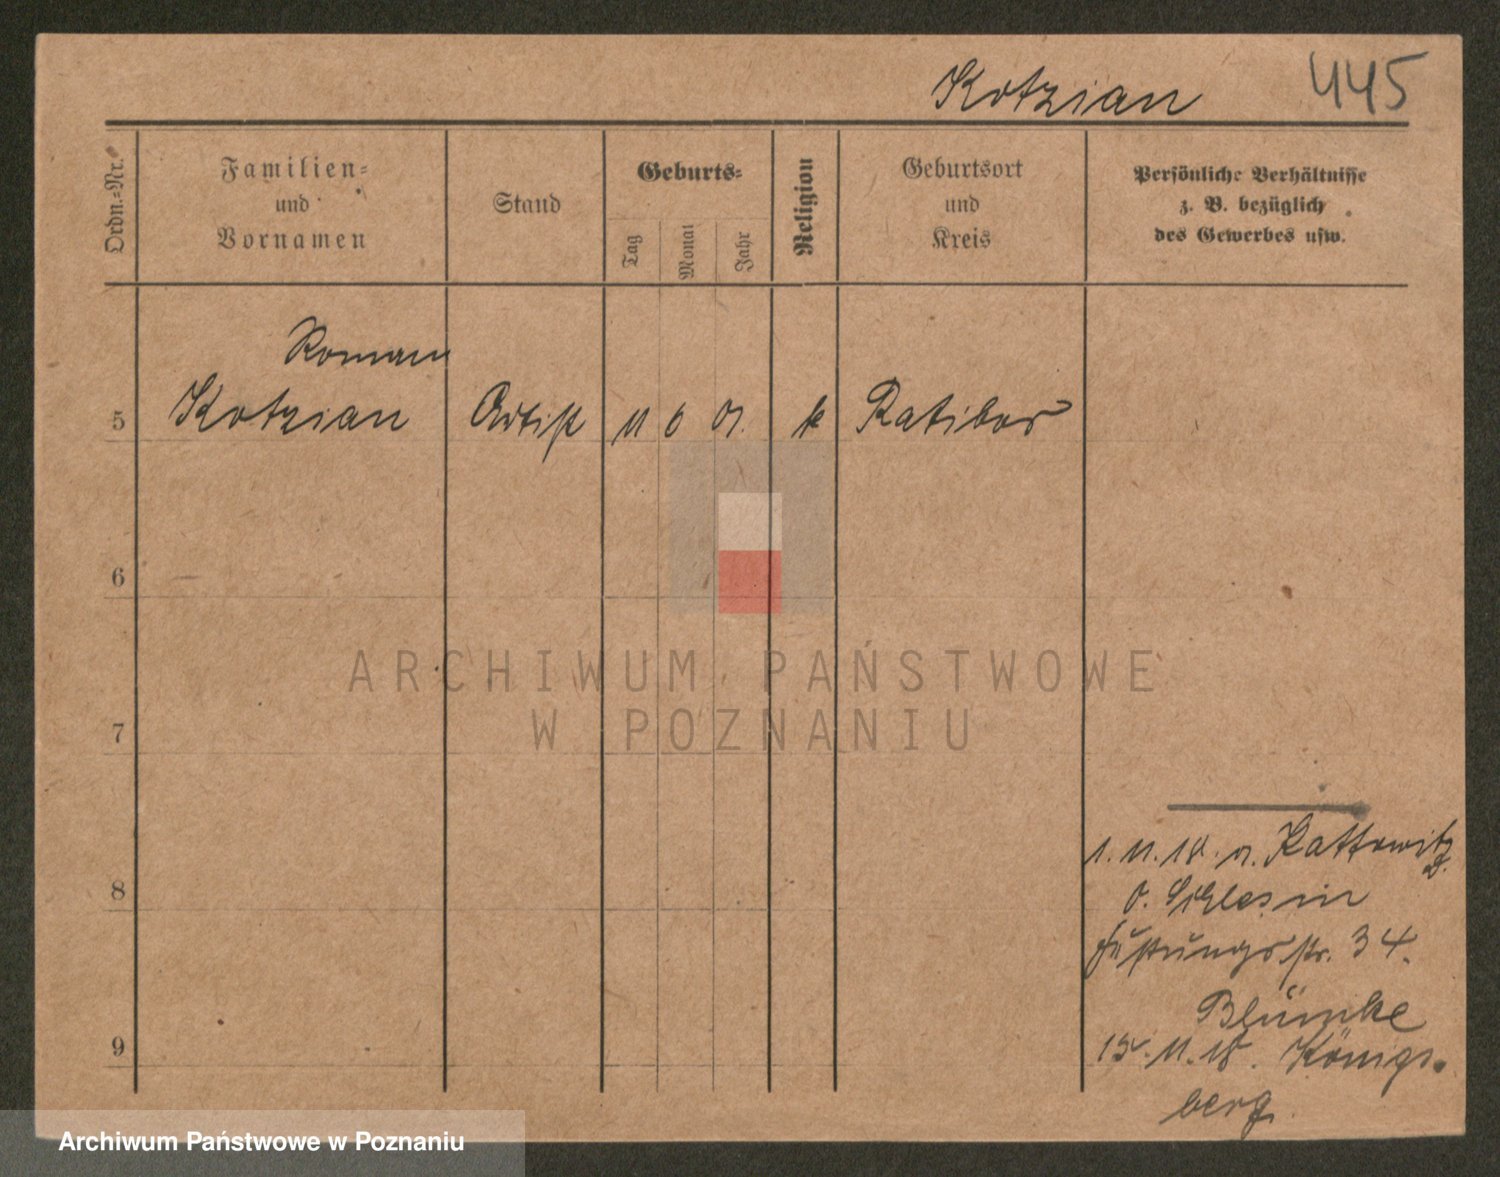 Kotzian 445
Ordn.-Nr.
Familien-
und
Vornamen
Stand
Geburts-
Tag
Monat
Jahr
Religion
Geburtsort
und
Kreis
Persönliche Verhältnisse
z. B. bezüglich
des Gewerbes usw.
Roman
5 Kotzian Artist 11 6 k Ratibor
6
7
8
9
1. 11. 18. Kattowitz
O. Schlesin
str. 34.
Blümke
15. 11. 18. Königs-
berg.
ARCHIWUM PAŃSTWOWE
W POZNANIU
Archiwum Państwowe w Poznaniu